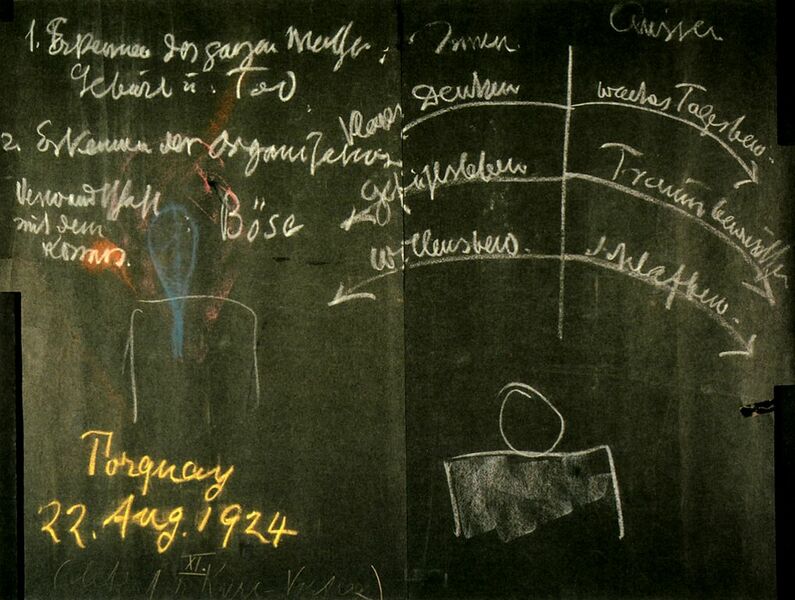 1. Erkennen des ganzen
Geburt u. Tod
2. Erkennen der Organisation
Verwandtschaft
mit dem
Kosmos.
Böse
Innen
Aussen
Denken
waches Tagsbew.
Gefühlsleben
Traumbewusstsein
Willensbew.
Schlafbew.
Torquay
22. Aug. 1924
XI.